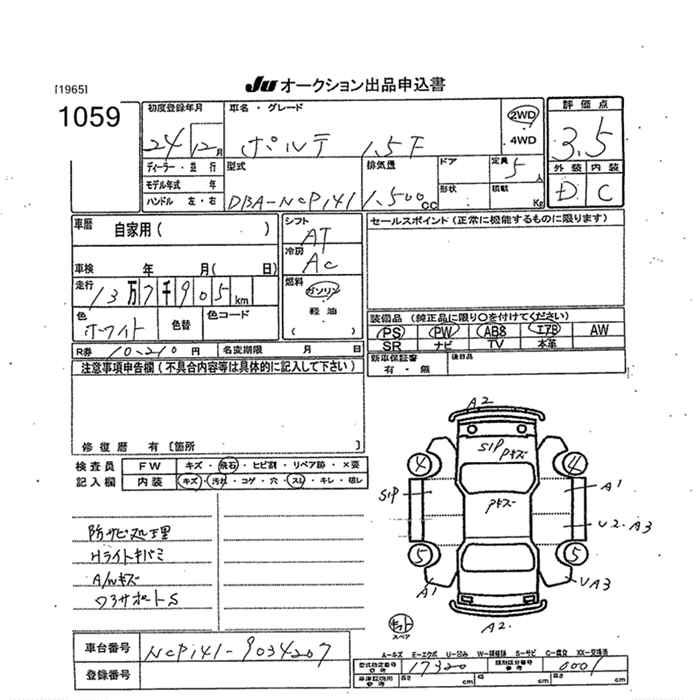 [1965]
JU オークション出品申込書
1059
初度登録年月
24 12月
車名・グレード
ポルテ 1.5F
2WD
4WD
評価点
3.5
ディーラー・並行
モデル年式 年
ハンドル 左・右
型式
DBA-NCP141
排気量
1,500cc
ドア
形状
定員
5人
積載
Kg
外装 内装
D C
車暦
自家用( )
シフト
AT
セールスポイント(正常に機能するものに限ります)
冷房
AC
車検 年 月( 日)
走行
13万7千905km
燃料
ガソリン
軽油
( )
色
ホワイト
色替
色コード
装備品(純正品に限り○を付けてください)
PS PW ABS エアB AW
SR ナビ TV 本革
R券 10,210円
名変期限 月 日
新車保証書
有・無
後日品
注意事項申告欄(不具合内容等は具体的に記入して下さい)
修復暦 有[箇所 ]
検査員
記入欄
FW キズ・飛石・ヒビ割・リペア跡・×要
内装 キズ・汚れ・コゲ・穴・スレ・キレ・破レ
防サビ処理
Hライトキバミ
A/Wキズ
ワヲサポートS
A2
S1P
Pキズ
4 4
S1P
Pキズ
A1
U2.A3
5 5
A1
UA3
A2
スペア
A-キズ E-エクボ U-凹み W-補修跡 S-サビ C-腐食 XX-交換済
車台番号
NCP141-9034207
登録番号
型式指定番号
参考
17320
類別区分番号
参考
0001
車庫証明用
参考
長さ cm
幅 cm
高さ cm